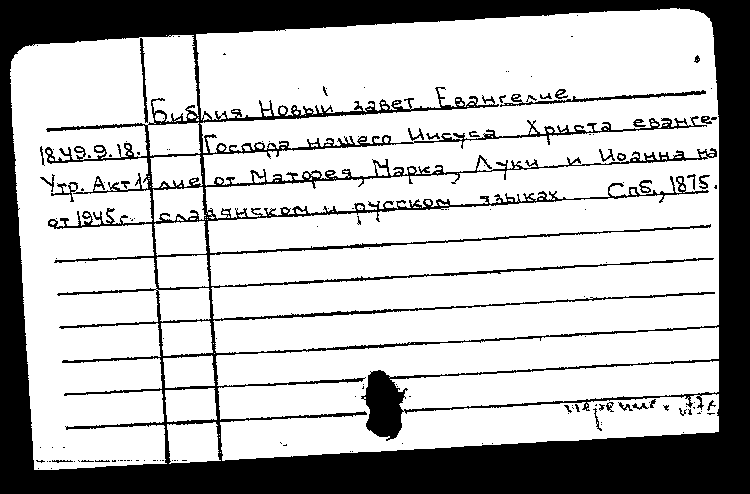 Библия. Новый завет. Евангелие.
18.49.9.18. Господа нашего Иисуса Христа еванге-
Утр. Акт 11 лие от Матфея, Марка, Луки и Иоанна на
от 1945 г. славянском и русском языках. Спб., 1875.